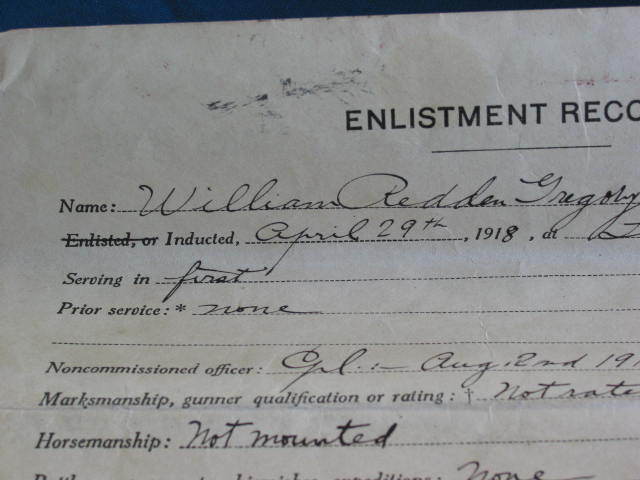 ENLISTMENT RECO
Name: William Redden Gregory
Enlisted, or Inducted, April 29th, 1918, at
Serving in first
Prior service:* none
Noncommissioned officer: Cpl. :- Aug. 2nd 191
Marksmanship, gunner qualification or rating:† Not rate
Horsemanship: Not mounted
expeditions: none